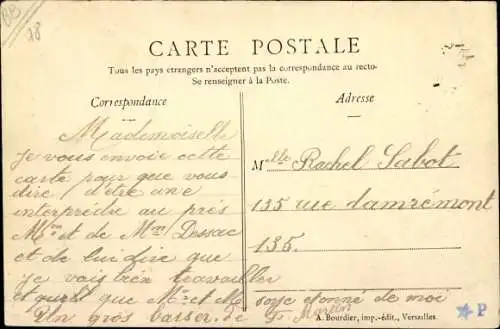 BB
28
CARTE POSTALE
Tous les pays étrangers n'acceptent pas la correspondance au recto-
Se renseigner à la Poste.
Correspondance
Mademoiselle
je vous envoie cette
carte pour que vous
dire d'être une
interprédre au prés
Mon et de Mme Dessac
et de lui dire que
je vais bien travailler
et que Mr et M soye étonné de moi
Un gros basser. de F. Martin
Adresse
Mlle Rachel Sabot
135 rue damrémont
135.
A. Bourdier, imp.-édit., Versailles
P